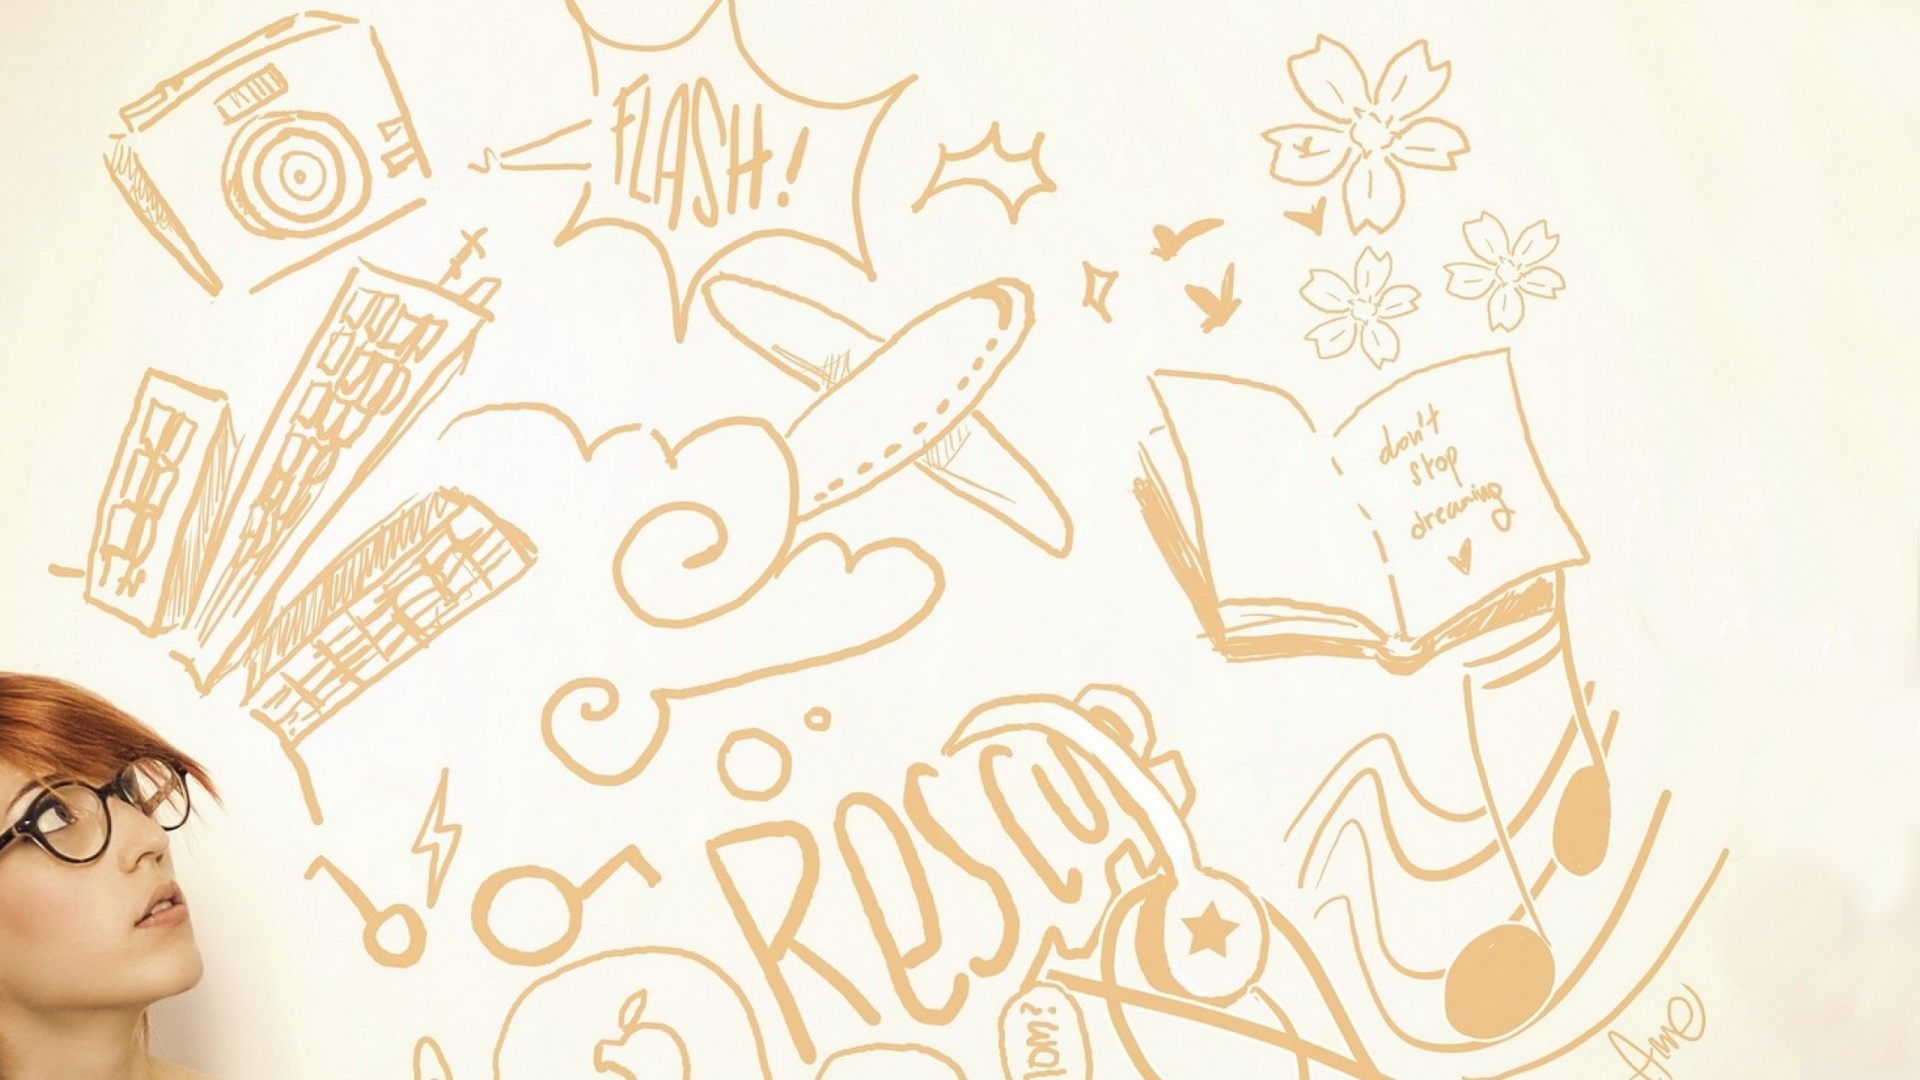 FLASH!
don't
stop
dreaming
Rescu